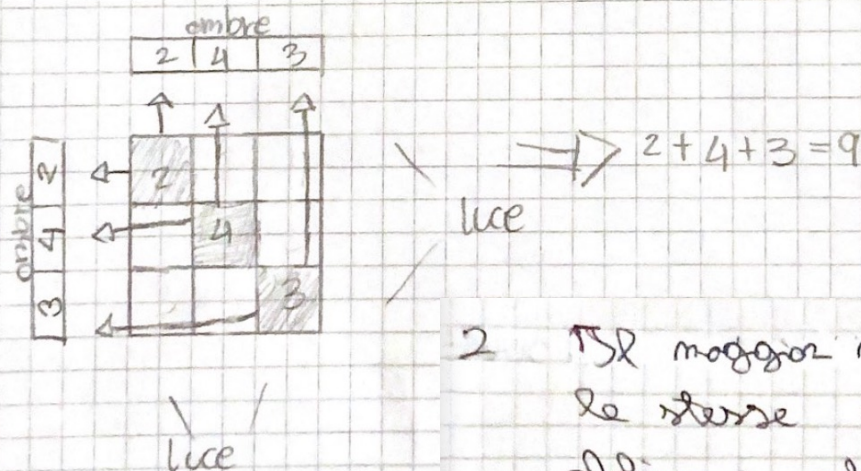 ombre
2 4 3
ombre
2 4 3
2
4
3
luce
luce
⇒ 2+4+3=9
2 Il maggior
le stesse